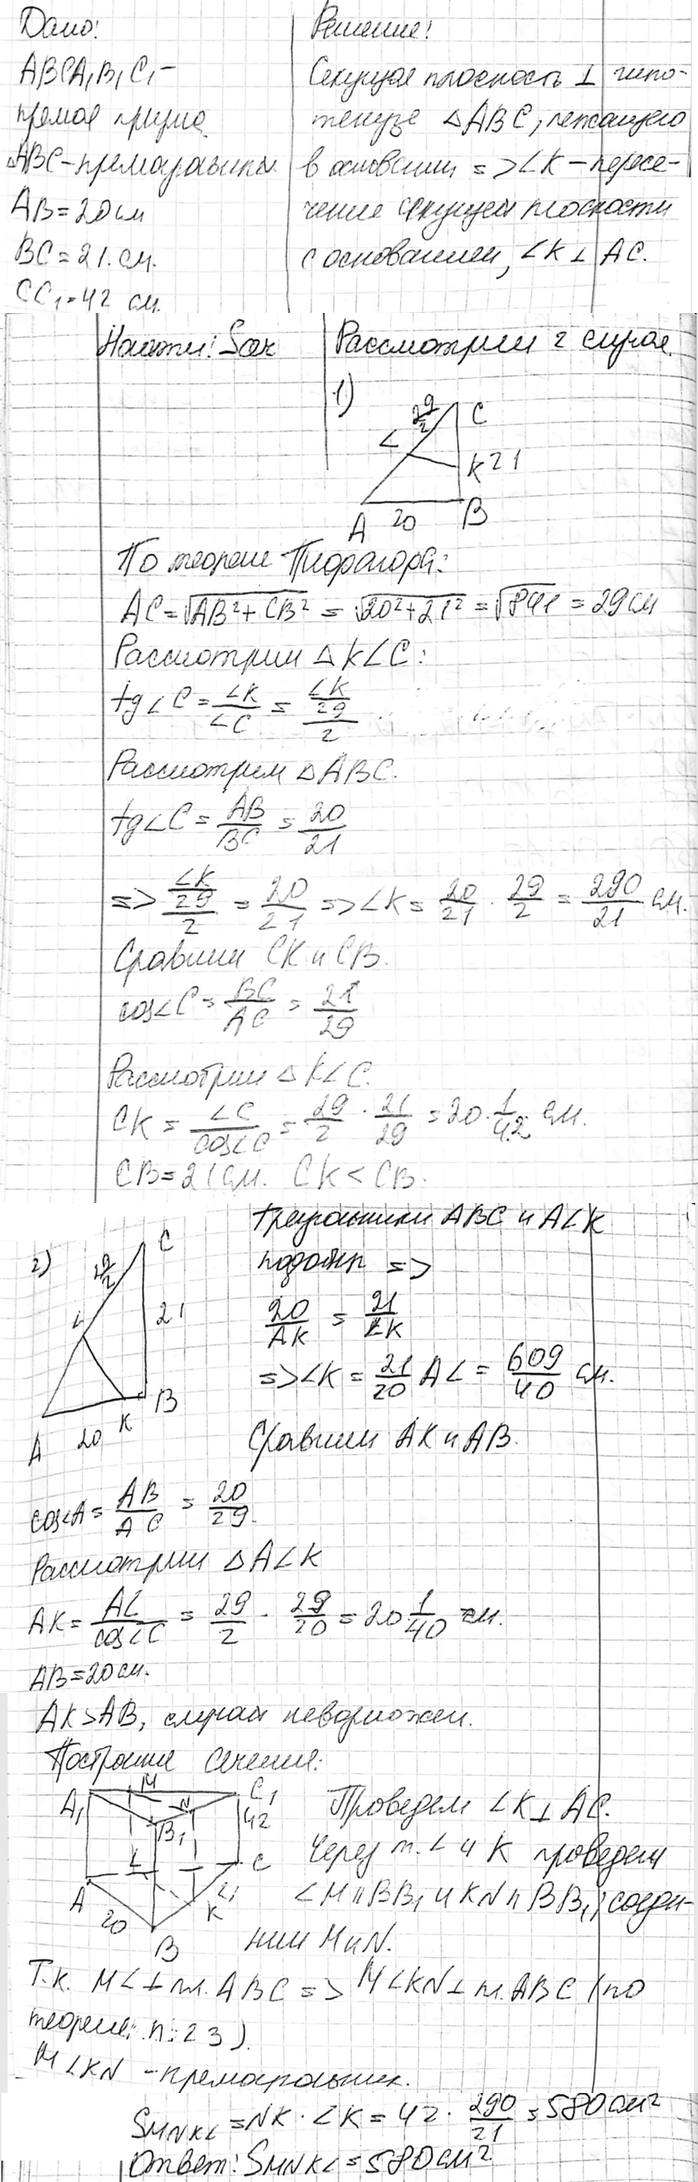 Дано:
ABCA₁B₁C₁ –
прямая призма
△ABC – прямоугольн.
AB = 20 см
BC = 21 см.
CC₁ = 42 см.
Решение:
Секущая плоскость ⊥ гипо-
тенузе △ABC, лежащего
в основании => LK – пересе-
чение секущей плоскости
с основанием, LK ⊥ AC.
Найти: Sсеч
Рассмотрим 2 случая
1)
29/2
C
L
K
21
A
20
B
По теореме Пифагора:
AC = √AB² + CB² = √20² + 21² = √841 = 29 см
Рассмотрим △KLC:
tg∠C = LK/LC = LK/(29/2)
Рассмотрим △ABC.
tg∠C = AB/BC = 20/21
=> LK/(29/2) = 20/21 => LK = 20/21 · 29/2 = 290/21 см.
Сравним CK и CB.
cos∠C = BC/AC = 21/29
Рассмотрим △KLC.
CK = LC/cos∠C = 29/2 · 21/29 = 20 · 1/42 см.
CB = 21 см. CK < CB.
2)
29/2
C
L
21
A
20
K
B
Треугольники ABC и ALK
подобны =>
20/AK = 21/LK
=> LK = 21/20 AL = 609/40 см.
Сравним AK и AB.
cos∠A = AB/AC = 20/29.
Рассмотрим △ALK
AK = AL/cos∠C = 29/2 · 29/20 = 20 1/40 см.
AB = 20 см.
AK > AB, случай невозможен.
Построим сечение:
A₁
M
C₁
N
B₁
42
L
C
A
21
K
20
B
Проведем LK ⊥ AC.
Через т. L и K проведем
LM || BB₁ и KN || BB₁; соеди-
ним M и N.
Т.к. ML ⊥ пл. ABC => MLKN ⊥ пл. ABC (по
теореме: п: 23).
MLKN – прямоугольник.
SMNKL = NK · LK = 42 · 290/21 = 580 см²
Ответ: SMNKL = 580 см²